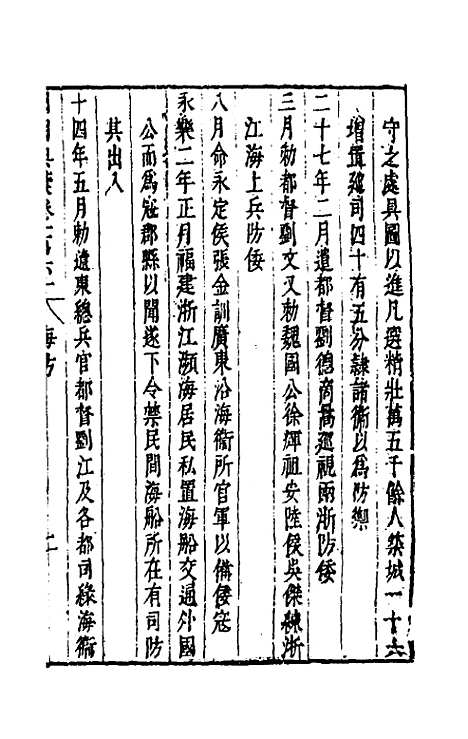 守之處具圖以進凡選精壯萬五千餘人築城一十六
增置巡司四十有五分隸諸衛以爲防禦
二十七年二月遣都督劉德商暠巡視兩浙防倭
三月勑都督劉文又勑魏國公徐輝祖安陸侯吳傑練浙
江海上兵防倭
八月命永定侯張金訓廣東沿海衛所官軍以備倭寇
永樂二年正月福建浙江瀕海居民私置海船交通外國
公而爲寇郡縣以聞遂下令禁民間海船所在有司防
其出入
十四年五月勑遼東總兵官都督劉江及各都司緣海衛
海防